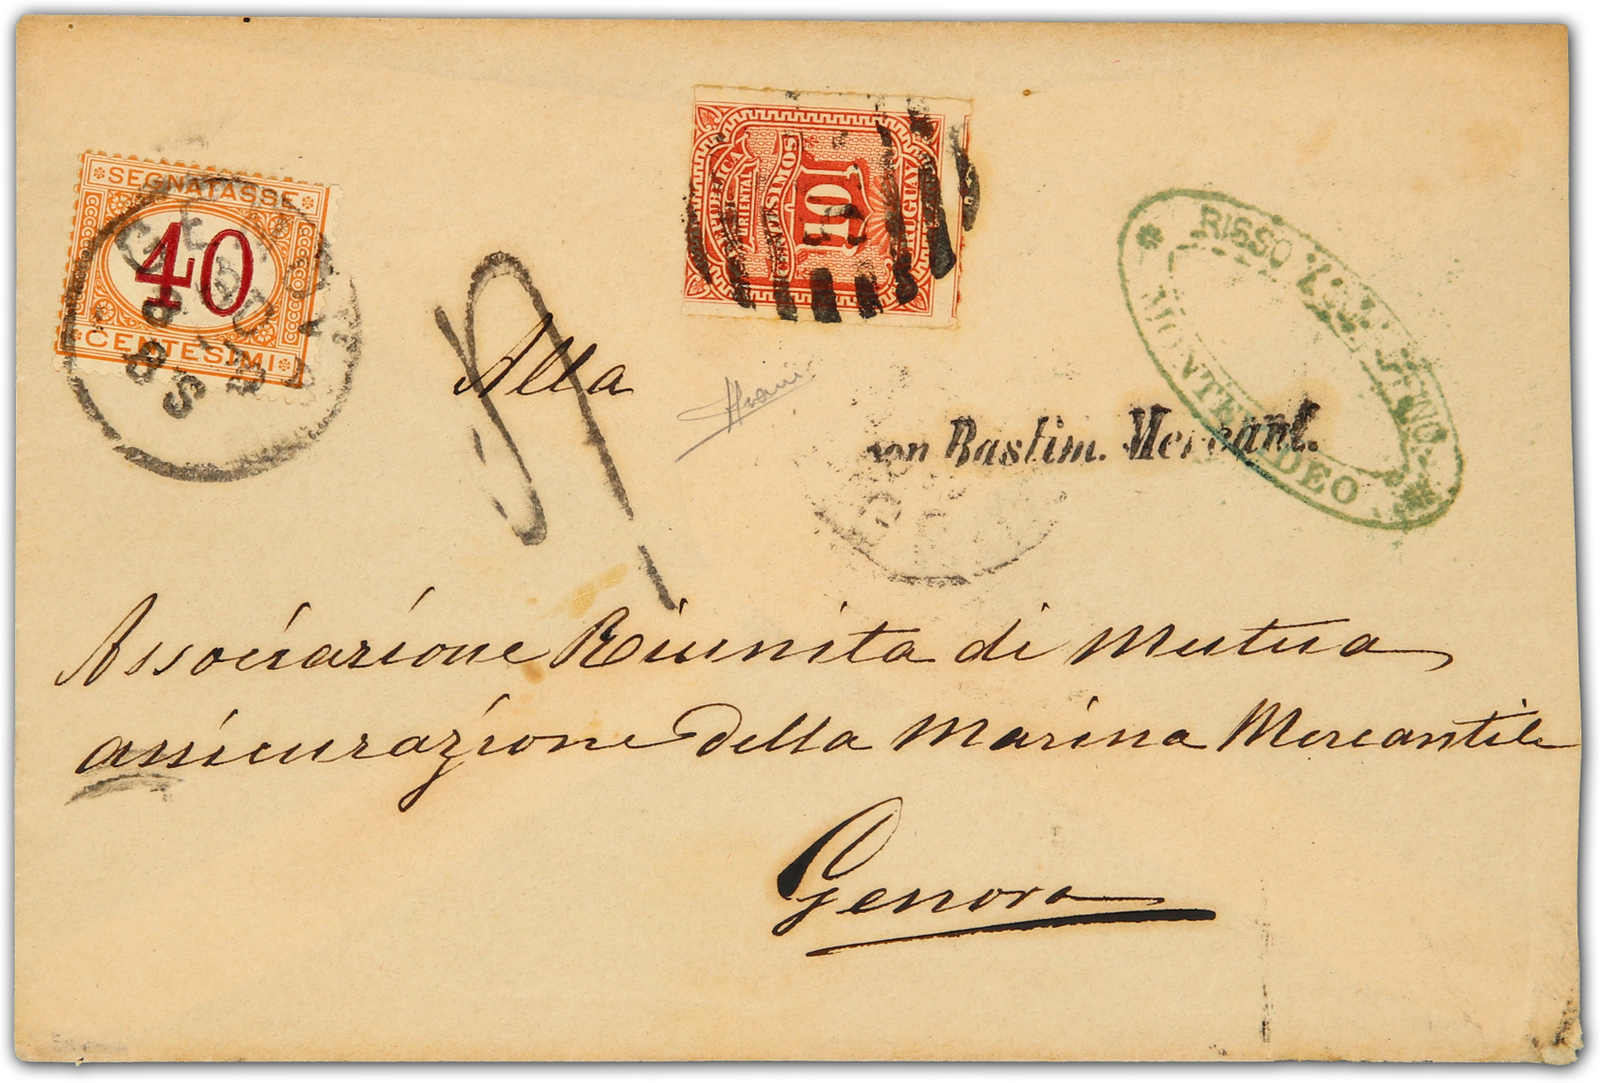 SEGNATASSE
40
CENTESIMI
GENOVA
REPUBLICA
ORIENTAL
URUGUAY
CENTESIMOS
10
RISSO
MONTEVIDEO
con Bastim. Mercant.
Alla
Associazione Riunita di Mutua
assicurazione della Marina Mercantile
Genova